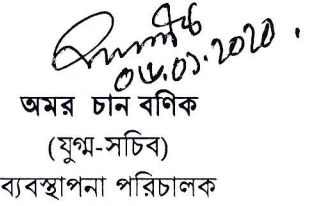 ০৮.০১.২০২০.
অমর চান বণিক
(যুগ্ম-সচিব)
ব্যবস্থাপনা পরিচালক